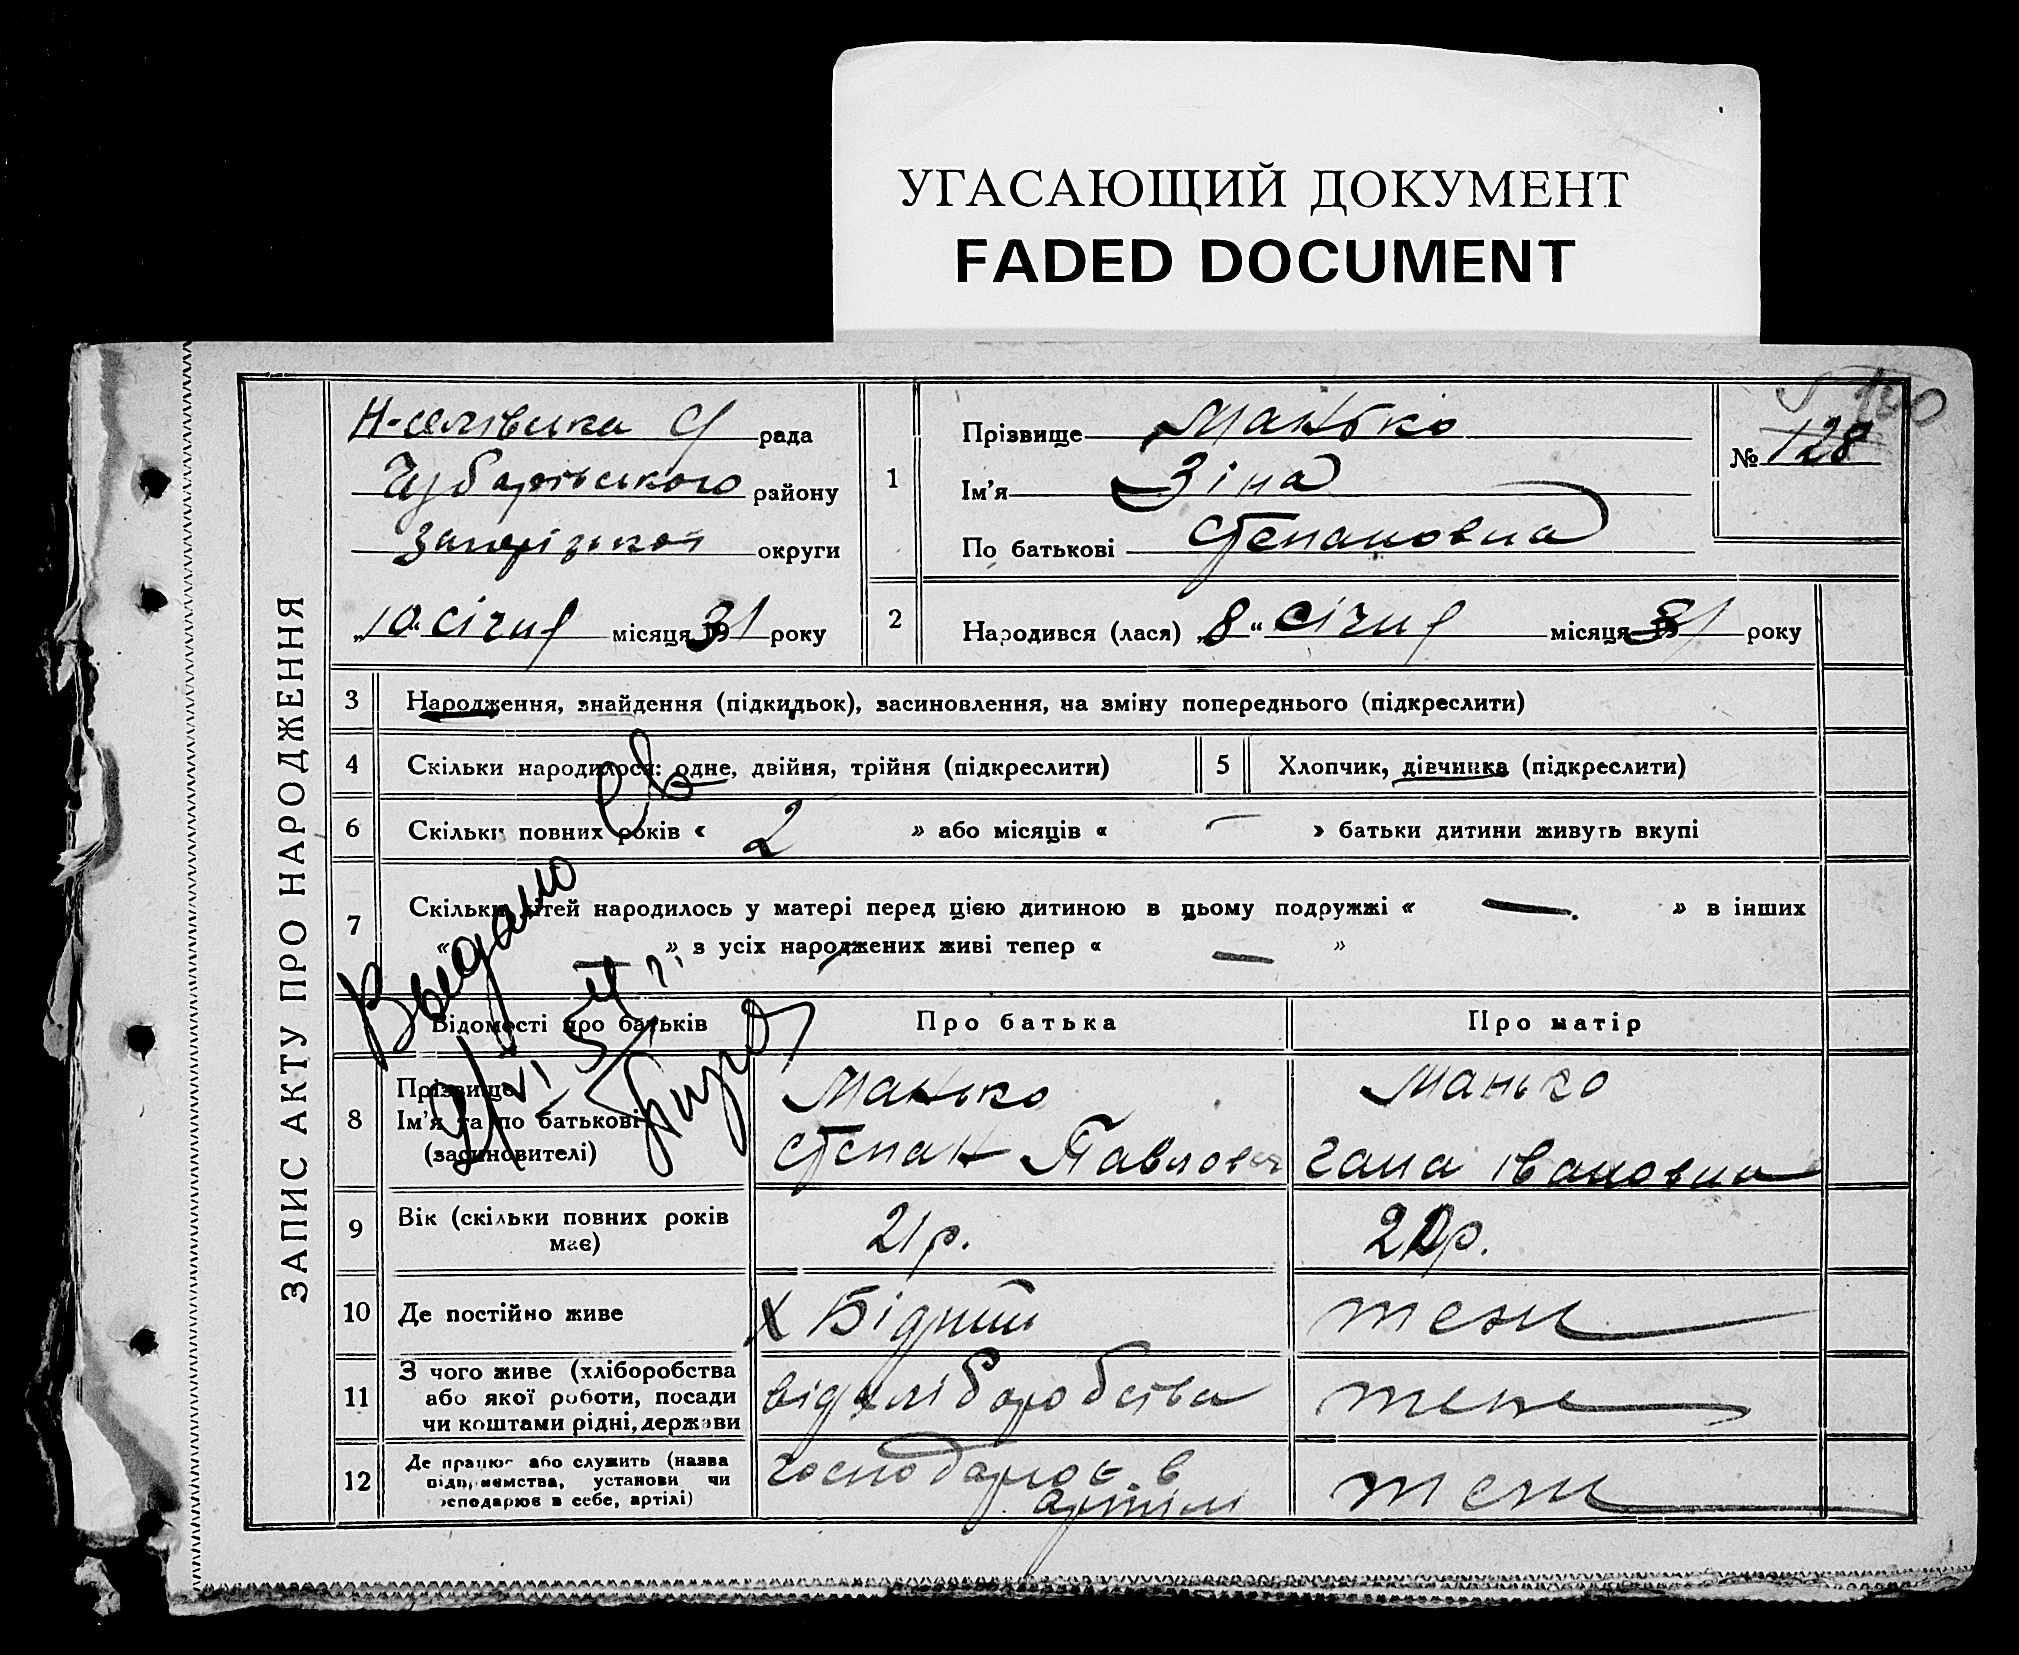 УГАСАЮЩИЙ ДОКУМЕНТ
FADED DOCUMENT
ЗАПИС АКТУ ПРО НАРОДЖЕННЯ
рада
Чубарівського району
Запорізької округи
„10“ січня місяця 1931 року
1
Прізвище Манько
Ім'я Зіна
По батькові Степановна
№ 128
2
Народився (лася) „8“ січня місяця 1931 року
3 Народження, знайдення (підкидьок), засиновлення, на зміну попереднього (підкреслити)
4 Скільки народилося: одне, двійня, трійня (підкреслити)
5 Хлопчик, дівчинка (підкреслити)
6 Скільки повних років « 2 » або місяців « — » батьки дитини живуть вкупі
7 Скільки дітей народилось у матері перед цією дитиною в цьому подружжі « — » в інших
« — » з усіх народжених живі тепер « — »
Выдано св
Відомості про батьків Про батька Про матір
8 Прізвище
Ім'я та по батькові
(засиновителі)
Манько
Степан Павлович
Манько
Гана Івановна
9 Вік (скільки повних років
має)
21 р.
20 р.
10 Де постійно живе
теж
11 З чого живе (хліборобства
або якої роботи, посади
чи коштами рідні, держави
від хліборобства
теж
12 Де працює або служить (назва
підприємства, установи чи
господарює в себе, артілі)
господарює в
артілі
теж